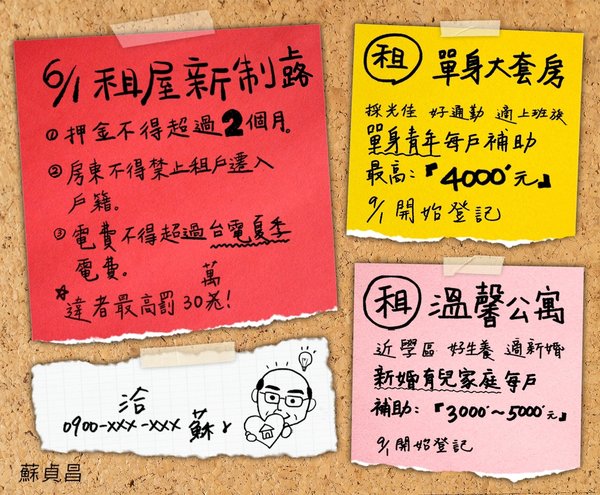 6/1 租屋新制上路
① 押金不得超過2個月。
② 房東不得禁止租戶遷入
戶籍。
③ 電費不得超過台電夏季
電費。
☆違者最高罰30萬!
租 單身大套房
採光佳 好通勤 適上班族
單身青年每戶補助
最高:『4000元』
9/1 開始登記
租 溫馨公寓
近學區 好生養 適新婚
新婚育兒家庭每戶
補助:『3000~5000元』
9/1 開始登記
洽
0900-xxx-xxx 蘇
蘇貞昌